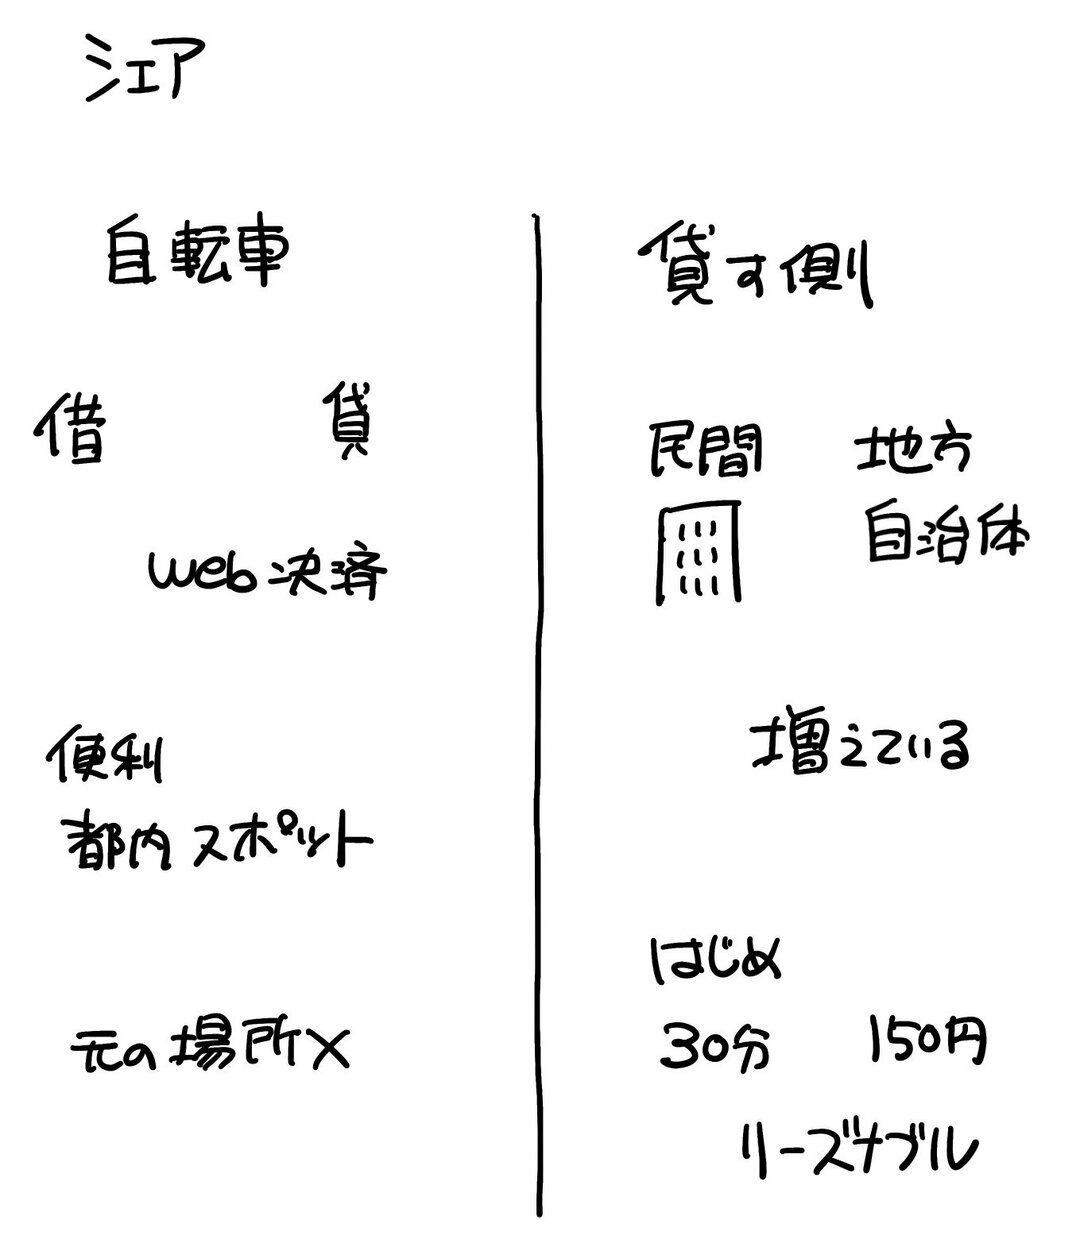 シェア
自転車
借 貸
web決済
便利
都内スポット
元の場所×
貸す側
民間 地方
自治体
増えている
はじめ
30分 150円
リーズナブル